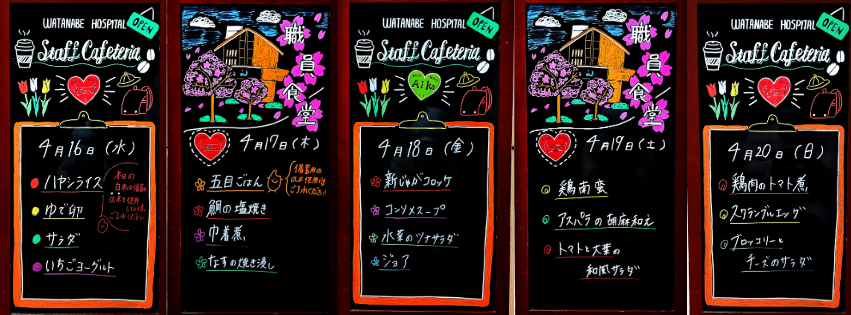 WATANABE HOSPITAL
OPEN
Staff Cafeteria
4月16日(水)
ハヤシライス
ゆで卵
サラダ
いちごヨーグルト
本日の
職員食堂
4月17日(木)
五目ごはん
鯛の塩焼き
巾着煮
なすの焼き浸し
WATANABE HOSPITAL
OPEN
Staff Cafeteria
Aiko
4月18日(金)
新じゃがコロッケ
コンソメスープ
水菜のツナサラダ
ジョア
職員食堂
4月19日(土)
鶏南蛮
アスパラの胡麻和え
トマトと大葉の
和風サラダ
WATANABE HOSPITAL
OPEN
Staff Cafeteria
4月20日(日)
鶏肉のトマト煮
スクランブルエッグ
ブロッコリーと
チーズのサラダ